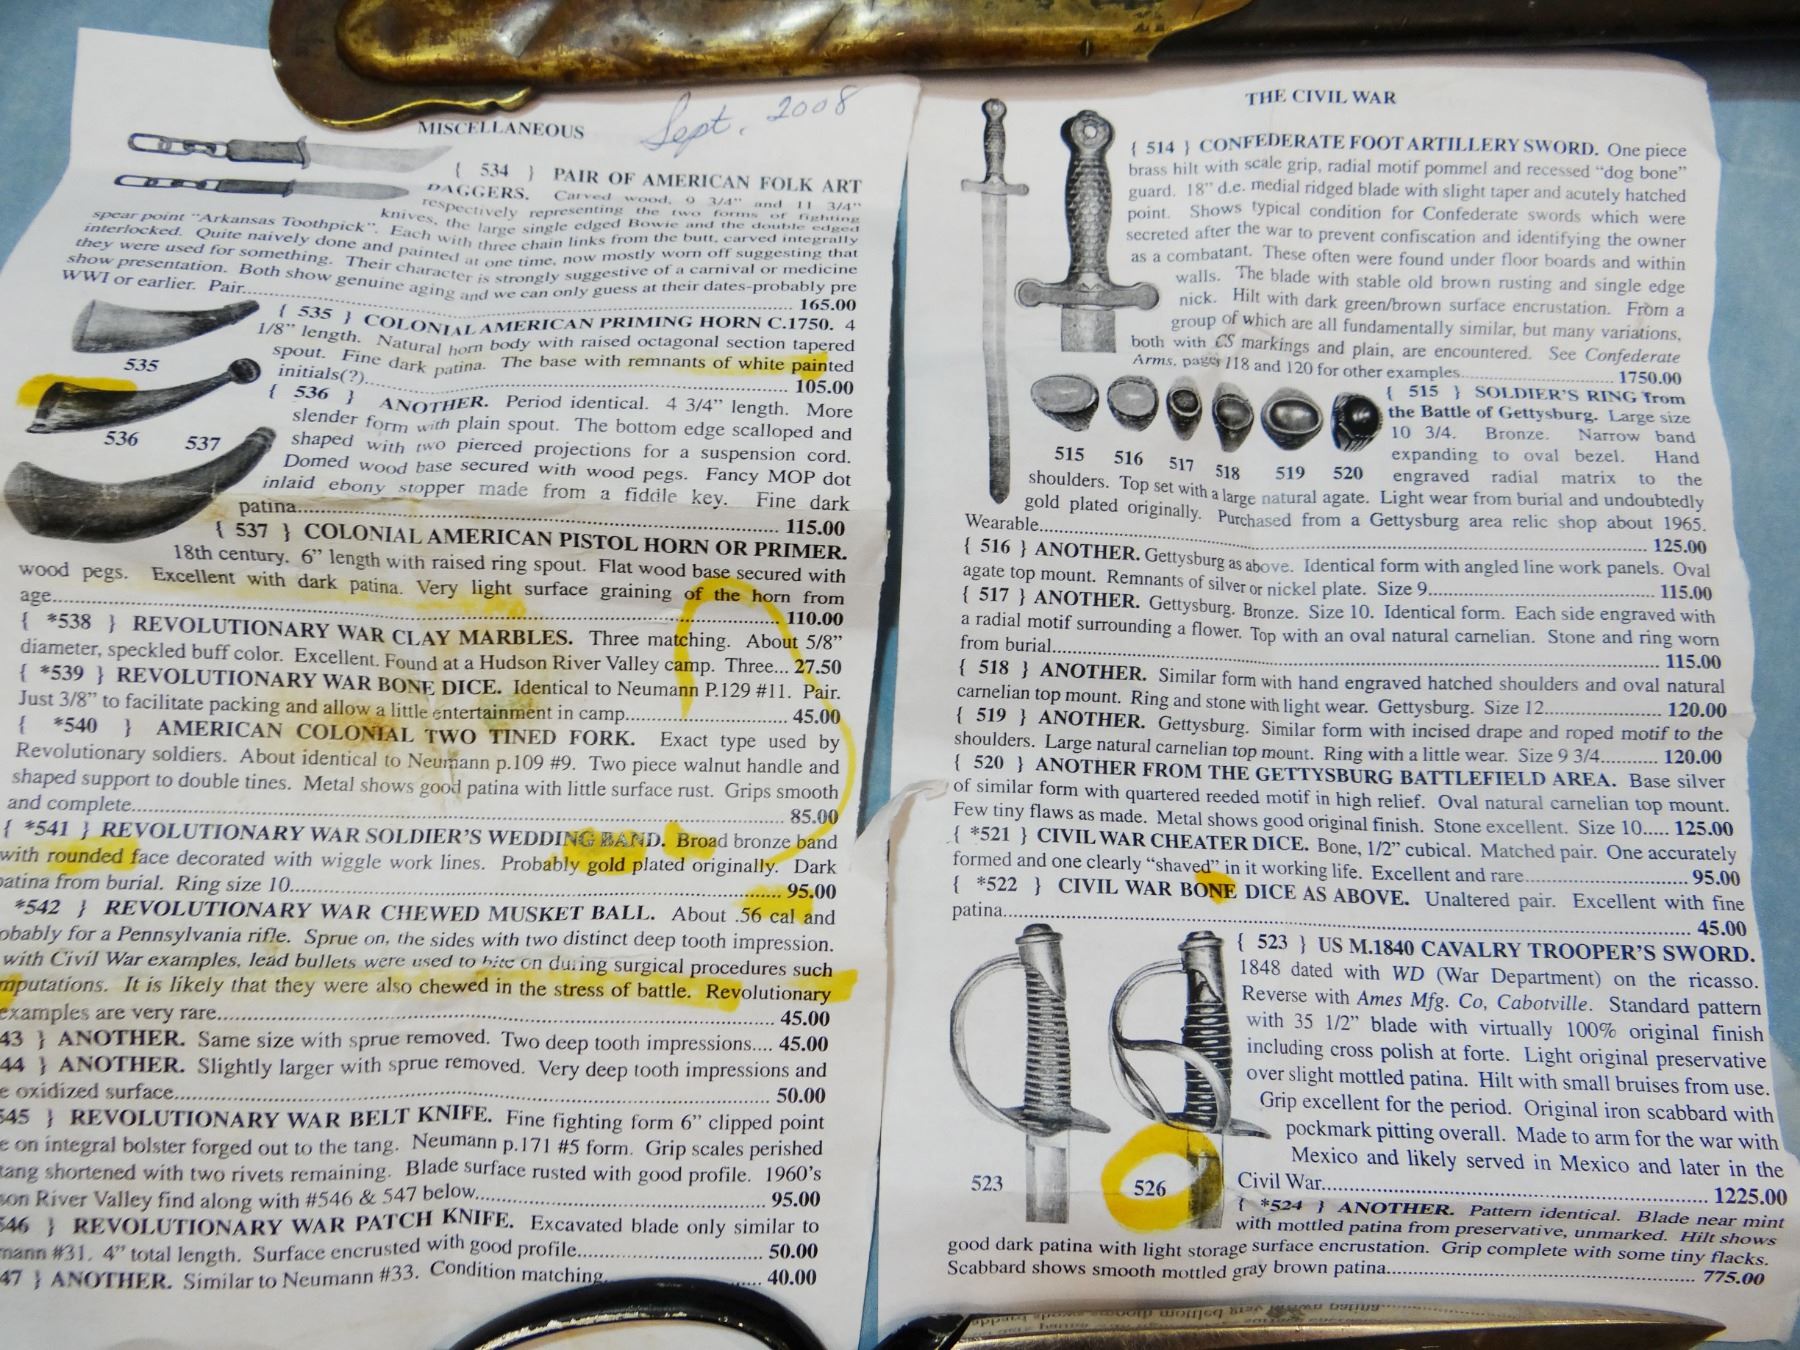 Sept. 2008
MISCELLANEOUS
{ 534 } PAIR OF AMERICAN FOLK ART
DAGGERS. Carved wood, 9 3/4" and 11 3/4"
respectively representing the two forms of fighting
knives, the large single edged Bowie and the double edged
spear point "Arkansas Toothpick". Each with three chain links from the butt, carved integrally
interlocked. Quite naively done and painted at one time, now mostly worn off suggesting that
they were used for something. Their character is strongly suggestive of a carnival or medicine
show presentation. Both show genuine aging and we can only guess at their dates-probably pre
WWI or earlier. Pair..... 165.00
{ 535 } COLONIAL AMERICAN PRIMING HORN C.1750. 4
1/8" length. Natural horn body with raised octagonal section tapered
spout. Fine dark patina. The base with remnants of white painted
initials(?)..... 105.00
535
{ 536 } ANOTHER. Period identical. 4 3/4" length. More
slender form with plain spout. The bottom edge scalloped and
shaped with two pierced projections for a suspension cord.
Domed wood base secured with wood pegs. Fancy MOP dot
inlaid ebony stopper made from a fiddle key. Fine dark
patina..... 115.00
536 537
{ 537 } COLONIAL AMERICAN PISTOL HORN OR PRIMER.
18th century. 6" length with raised ring spout. Flat wood base secured with
wood pegs. Excellent with dark patina. Very light surface graining of the horn from
age..... 110.00
{ *538 } REVOLUTIONARY WAR CLAY MARBLES. Three matching. About 5/8"
diameter, speckled buff color. Excellent. Found at a Hudson River Valley camp. Three... 27.50
{ *539 } REVOLUTIONARY WAR BONE DICE. Identical to Neumann P.129 #11. Pair.
Just 3/8" to facilitate packing and allow a little entertainment in camp..... 45.00
{ *540 } AMERICAN COLONIAL TWO TINED FORK. Exact type used by
Revolutionary soldiers. About identical to Neumann p.109 #9. Two piece walnut handle and
shaped support to double tines. Metal shows good patina with little surface rust. Grips smooth
and complete..... 85.00
{ *541 } REVOLUTIONARY WAR SOLDIER'S WEDDING BAND. Broad bronze band
with rounded face decorated with wiggle work lines. Probably gold plated originally. Dark
patina from burial. Ring size 10..... 95.00
*542 } REVOLUTIONARY WAR CHEWED MUSKET BALL. About .56 cal and
obably for a Pennsylvania rifle. Sprue on, the sides with two distinct deep tooth impression.
with Civil War examples, lead bullets were used to bite on during surgical procedures such
mputations. It is likely that they were also chewed in the stress of battle. Revolutionary
examples are very rare..... 45.00
43 } ANOTHER. Same size with sprue removed. Two deep tooth impressions.... 45.00
44 } ANOTHER. Slightly larger with sprue removed. Very deep tooth impressions and
e oxidized surface..... 50.00
545 } REVOLUTIONARY WAR BELT KNIFE. Fine fighting form 6" clipped point
e on integral bolster forged out to the tang. Neumann p.171 #5 form. Grip scales perished
tang shortened with two rivets remaining. Blade surface rusted with good profile. 1960's
son River Valley find along with #546 & 547 below..... 95.00
546 } REVOLUTIONARY WAR PATCH KNIFE. Excavated blade only similar to
mann #31. 4" total length. Surface encrusted with good profile..... 50.00
47 } ANOTHER. Similar to Neumann #33. Condition matching..... 40.00
THE CIVIL WAR
{ 514 } CONFEDERATE FOOT ARTILLERY SWORD. One piece
brass hilt with scale grip, radial motif pommel and recessed "dog bone"
guard. 18" d.e. medial ridged blade with slight taper and acutely hatched
point. Shows typical condition for Confederate swords which were
secreted after the war to prevent confiscation and identifying the owner
as a combatant. These often were found under floor boards and within
walls. The blade with stable old brown rusting and single edge
nick. Hilt with dark green/brown surface encrustation. From a
group of which are all fundamentally similar, but many variations,
both with CS markings and plain, are encountered. See Confederate
Arms, pages 118 and 120 for other examples..... 1750.00
{ 515 } SOLDIER'S RING from
the Battle of Gettysburg. Large size
10 3/4. Bronze. Narrow band
expanding to oval bezel. Hand
engraved radial matrix to the
515 516 517 518 519 520
shoulders. Top set with a large natural agate. Light wear from burial and undoubtedly
gold plated originally. Purchased from a Gettysburg area relic shop about 1965.
Wearable..... 125.00
{ 516 } ANOTHER. Gettysburg as above. Identical form with angled line work panels. Oval
agate top mount. Remnants of silver or nickel plate. Size 9..... 115.00
{ 517 } ANOTHER. Gettysburg. Bronze. Size 10. Identical form. Each side engraved with
a radial motif surrounding a flower. Top with an oval natural carnelian. Stone and ring worn
from burial..... 115.00
{ 518 } ANOTHER. Similar form with hand engraved hatched shoulders and oval natural
carnelian top mount. Ring and stone with light wear. Gettysburg. Size 12..... 120.00
{ 519 } ANOTHER. Gettysburg. Similar form with incised drape and roped motif to the
shoulders. Large natural carnelian top mount. Ring with a little wear. Size 9 3/4..... 120.00
{ 520 } ANOTHER FROM THE GETTYSBURG BATTLEFIELD AREA. Base silver
of similar form with quartered reeded motif in high relief. Oval natural carnelian top mount.
Few tiny flaws as made. Metal shows good original finish. Stone excellent. Size 10..... 125.00
{ *521 } CIVIL WAR CHEATER DICE. Bone, 1/2" cubical. Matched pair. One accurately
formed and one clearly "shaved" in it working life. Excellent and rare..... 95.00
{ *522 } CIVIL WAR BONE DICE AS ABOVE. Unaltered pair. Excellent with fine
patina..... 45.00
{ 523 } US M.1840 CAVALRY TROOPER'S SWORD.
1848 dated with WD (War Department) on the ricasso.
Reverse with Ames Mfg. Co, Cabotville. Standard pattern
with 35 1/2" blade with virtually 100% original finish
including cross polish at forte. Light original preservative
over slight mottled patina. Hilt with small bruises from use.
Grip excellent for the period. Original iron scabbard with
pockmark pitting overall. Made to arm for the war with
Mexico and likely served in Mexico and later in the
Civil War..... 1225.00
523 526
{ *524 } ANOTHER. Pattern identical. Blade near mint
with mottled patina from preservative, unmarked. Hilt shows
good dark patina with light storage surface encrustation. Grip complete with some tiny flacks.
Scabbard shows smooth mottled gray brown patina..... 775.00